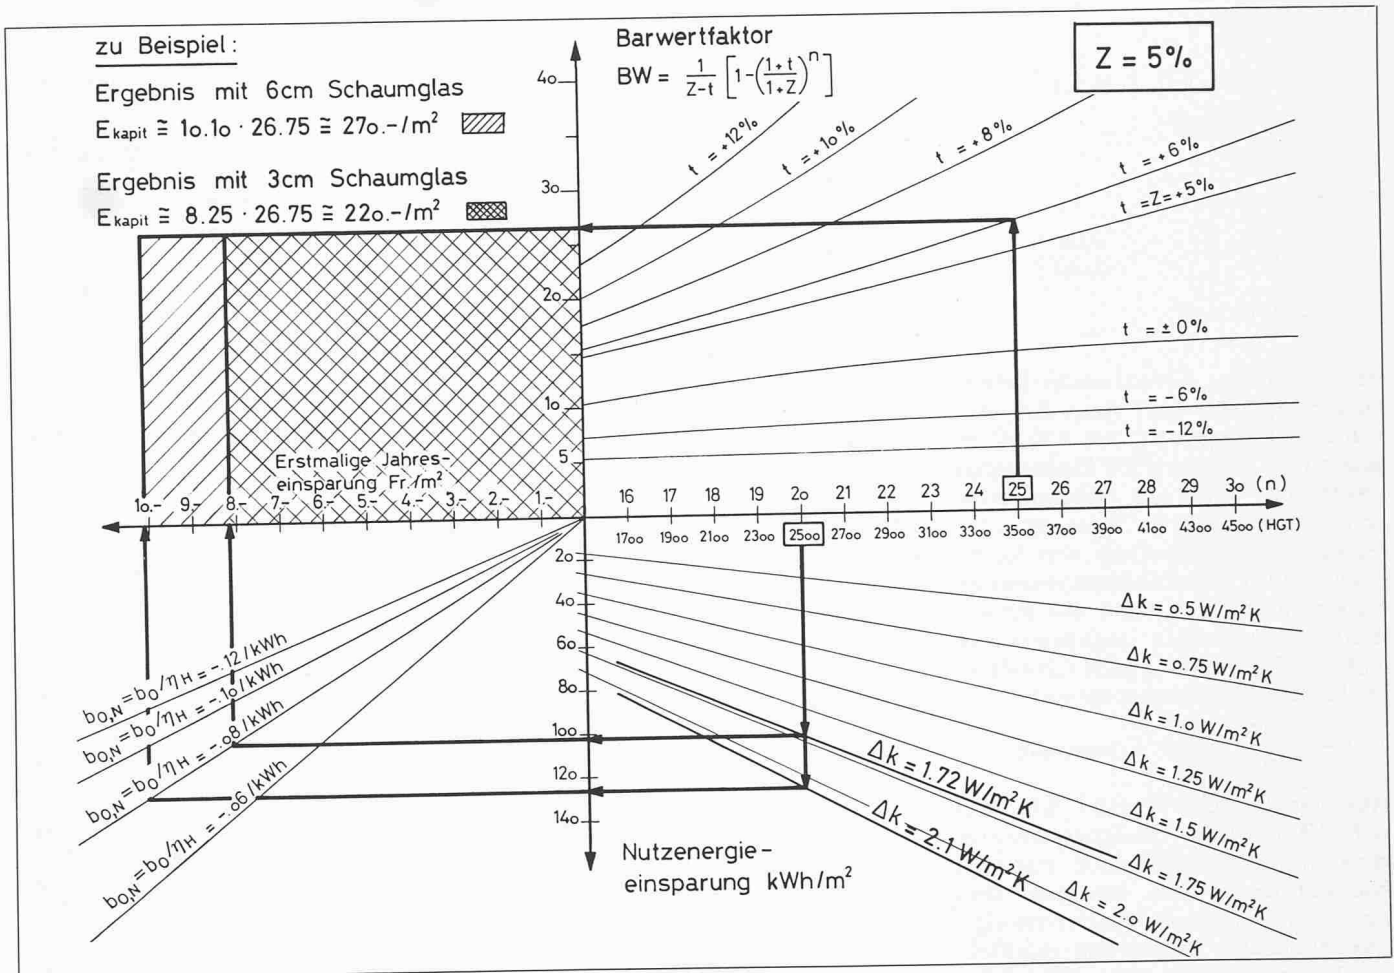 zu Beispiel:
Ergebnis mit 6cm Schaumglas
E kapit ≅ 1o.1o · 26.75 ≅ 27o.-/m²
Ergebnis mit 3cm Schaumglas
E kapit ≅ 8.25 · 26.75 ≅ 22o.-/m²
Barwertfaktor
BW = 1/(Z-t) [1-((1+t)/(1+Z))ⁿ]
Z = 5%
4o
3o
2o
1o
5
t = +12%
t = +1o%
t = +8%
t = +6%
t = Z = +5%
t = ±0%
t = -6%
t = -12%
Erstmalige Jahres-
einsparung Fr./m²
1o.- 9.- 8.- 7.- 6.- 5.- 4.- 3.- 2.- 1.-
16 17 18 19 2o 21 22 23 24 25 26 27 28 29 3o (n)
17oo 19oo 21oo 23oo 25oo 27oo 29oo 31oo 33oo 35oo 37oo 39oo 41oo 43oo 45oo (HGT)
2o
4o
6o
8o
1oo
12o
14o
b₀,N = b₀/ηH = -.12/kWh
b₀,N = b₀/ηH = -.1o/kWh
b₀,N = b₀/ηH = -.o8/kWh
b₀,N = b₀/ηH = -.o6/kWh
Δk = o.5 W/m²K
Δk = o.75 W/m²K
Δk = 1.o W/m²K
Δk = 1.25 W/m²K
Δk = 1.5 W/m²K
Δk = 1.72 W/m²K
Δk = 1.75 W/m²K
Δk = 2.o W/m²K
Δk = 2.1 W/m²K
Nutzenergie-
einsparung kWh/m²